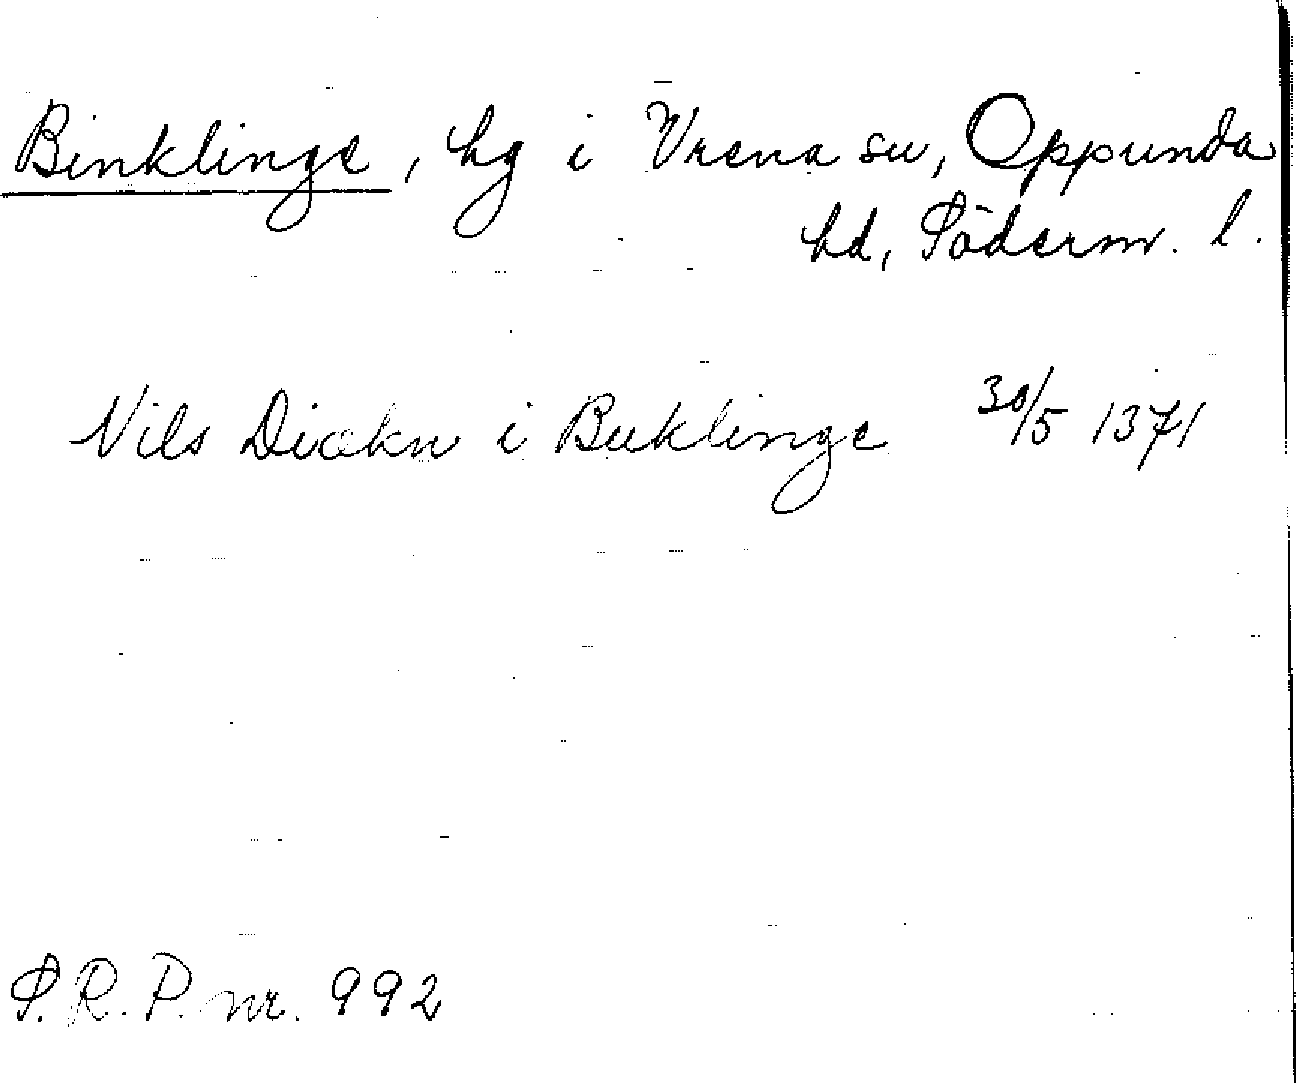 Binklinge, hg i Vrena sn, Oppunda
hd, Söderm. l.
Nils Diækn i Buklinge 30/5 1371
S.R.P. nr. 992